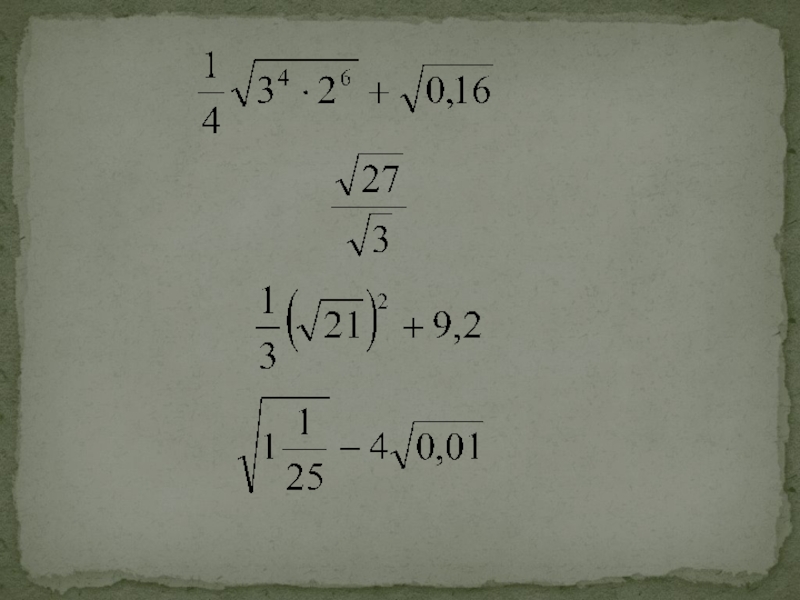 1/4 √(3⁴ · 2⁶) + √0,16
√27/√3
1/3 (√21)² + 9,2
√(1 1/25) − 4√0,01